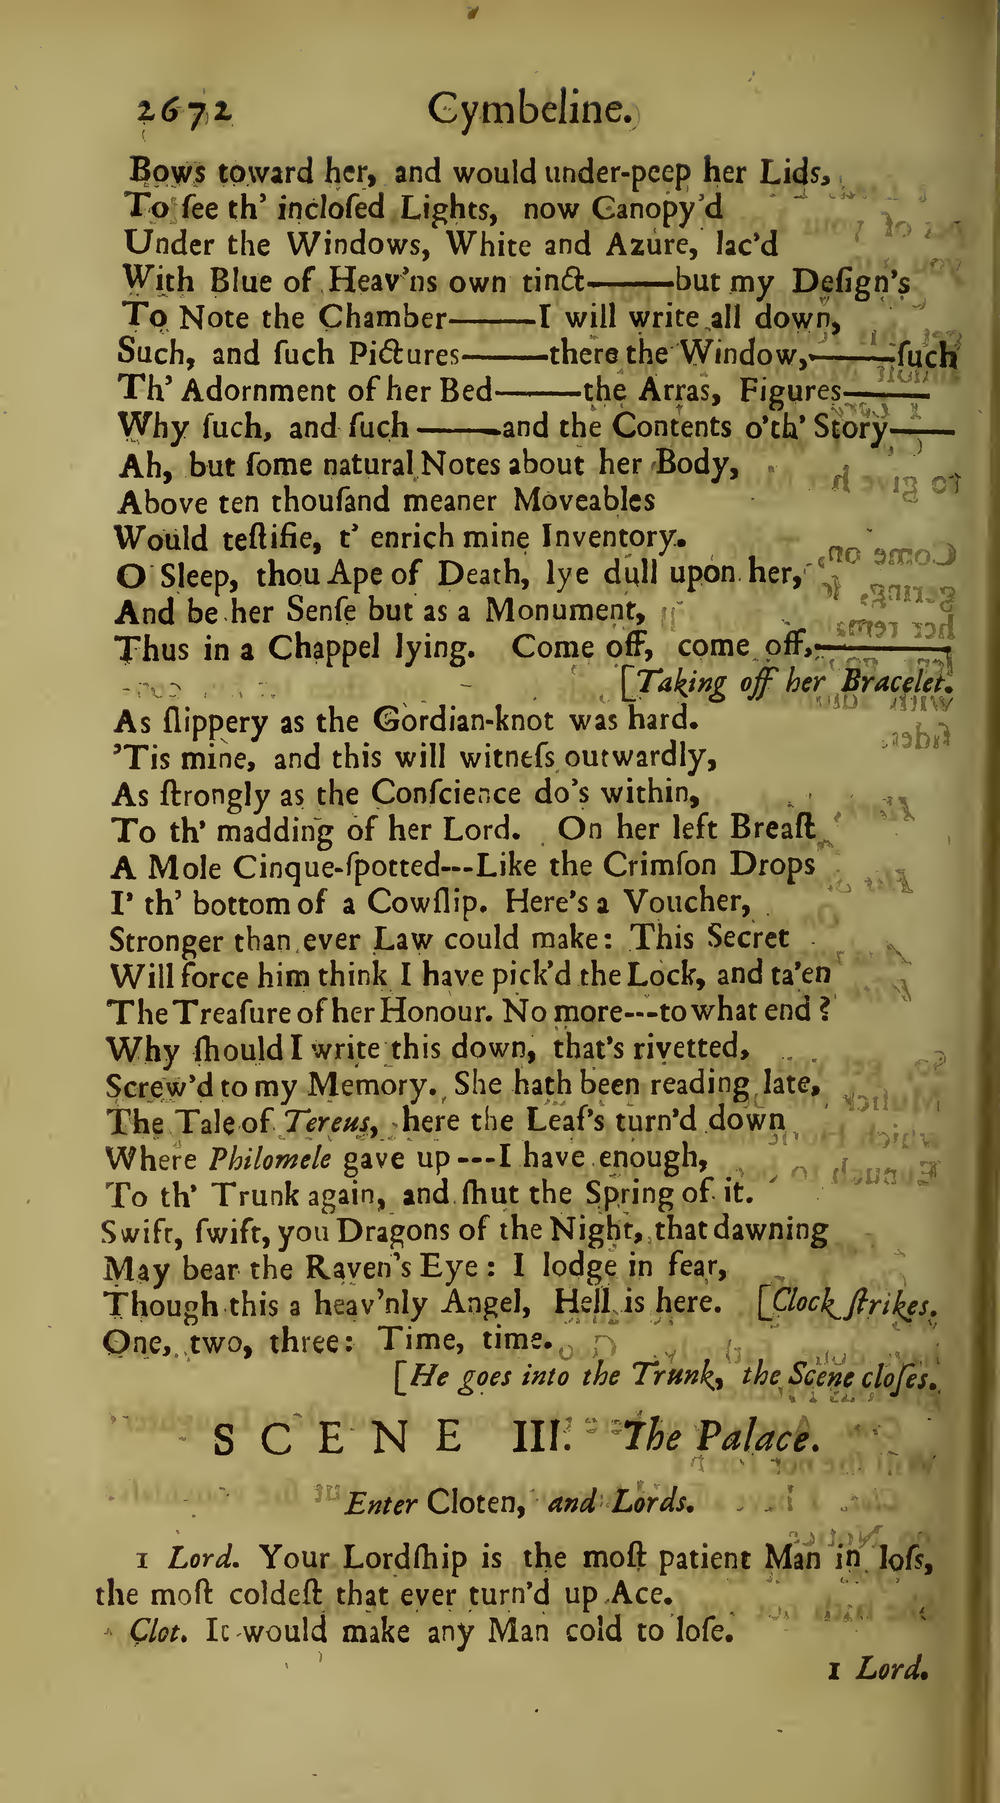 2672 Cymbeline.
Bows toward her, and would under-peep her Lids,
To ſee th' incloſed Lights, now Canopy'd
Under the Windows, White and Azure, lac'd
With Blue of Heav'ns own tinct——but my Deſign's
To Note the Chamber——I will write all down,
Such, and ſuch Pictures——there the Window,——ſuch
Th' Adornment of her Bed——the Arras, Figures——
Why ſuch, and ſuch——and the Contents o'th' Story——
Ah, but ſome natural Notes about her Body,
Above ten thouſand meaner Moveables
Would teſtifie, t' enrich mine Inventory.
O Sleep, thou Ape of Death, lye dull upon her,
And be her Senſe but as a Monument,
Thus in a Chappel lying. Come off, come off,——
[Taking off her Bracelet.
As ſlippery as the Gordian-knot was hard.
'Tis mine, and this will witneſs outwardly,
As ſtrongly as the Conſcience do's within,
To th' madding of her Lord. On her left Breaſt
A Mole Cinque-ſpotted---Like the Crimſon Drops
I' th' bottom of a Cowſlip. Here's a Voucher,
Stronger than ever Law could make: This Secret
Will force him think I have pick'd the Lock, and ta'en
The Treaſure of her Honour. No more---to what end?
Why ſhould I write this down, that's rivetted,
Screw'd to my Memory. She hath been reading late,
The Tale of Tereus, here the Leaf's turn'd down
Where Philomele gave up---I have enough,
To th' Trunk again, and ſhut the Spring of it.
Swift, ſwift, you Dragons of the Night, that dawning
May bear the Raven's Eye: I lodge in fear,
Though this a heav'nly Angel, Hell is here. [Clock ſtrikes.
One, two, three: Time, time.
[He goes into the Trunk, the Scene cloſes.
SCENE III. The Palace.
Enter Cloten, and Lords.
1 Lord. Your Lordſhip is the moſt patient Man in loſs,
the moſt coldeſt that ever turn'd up Ace.
Clot. It would make any Man cold to loſe.
1 Lord.